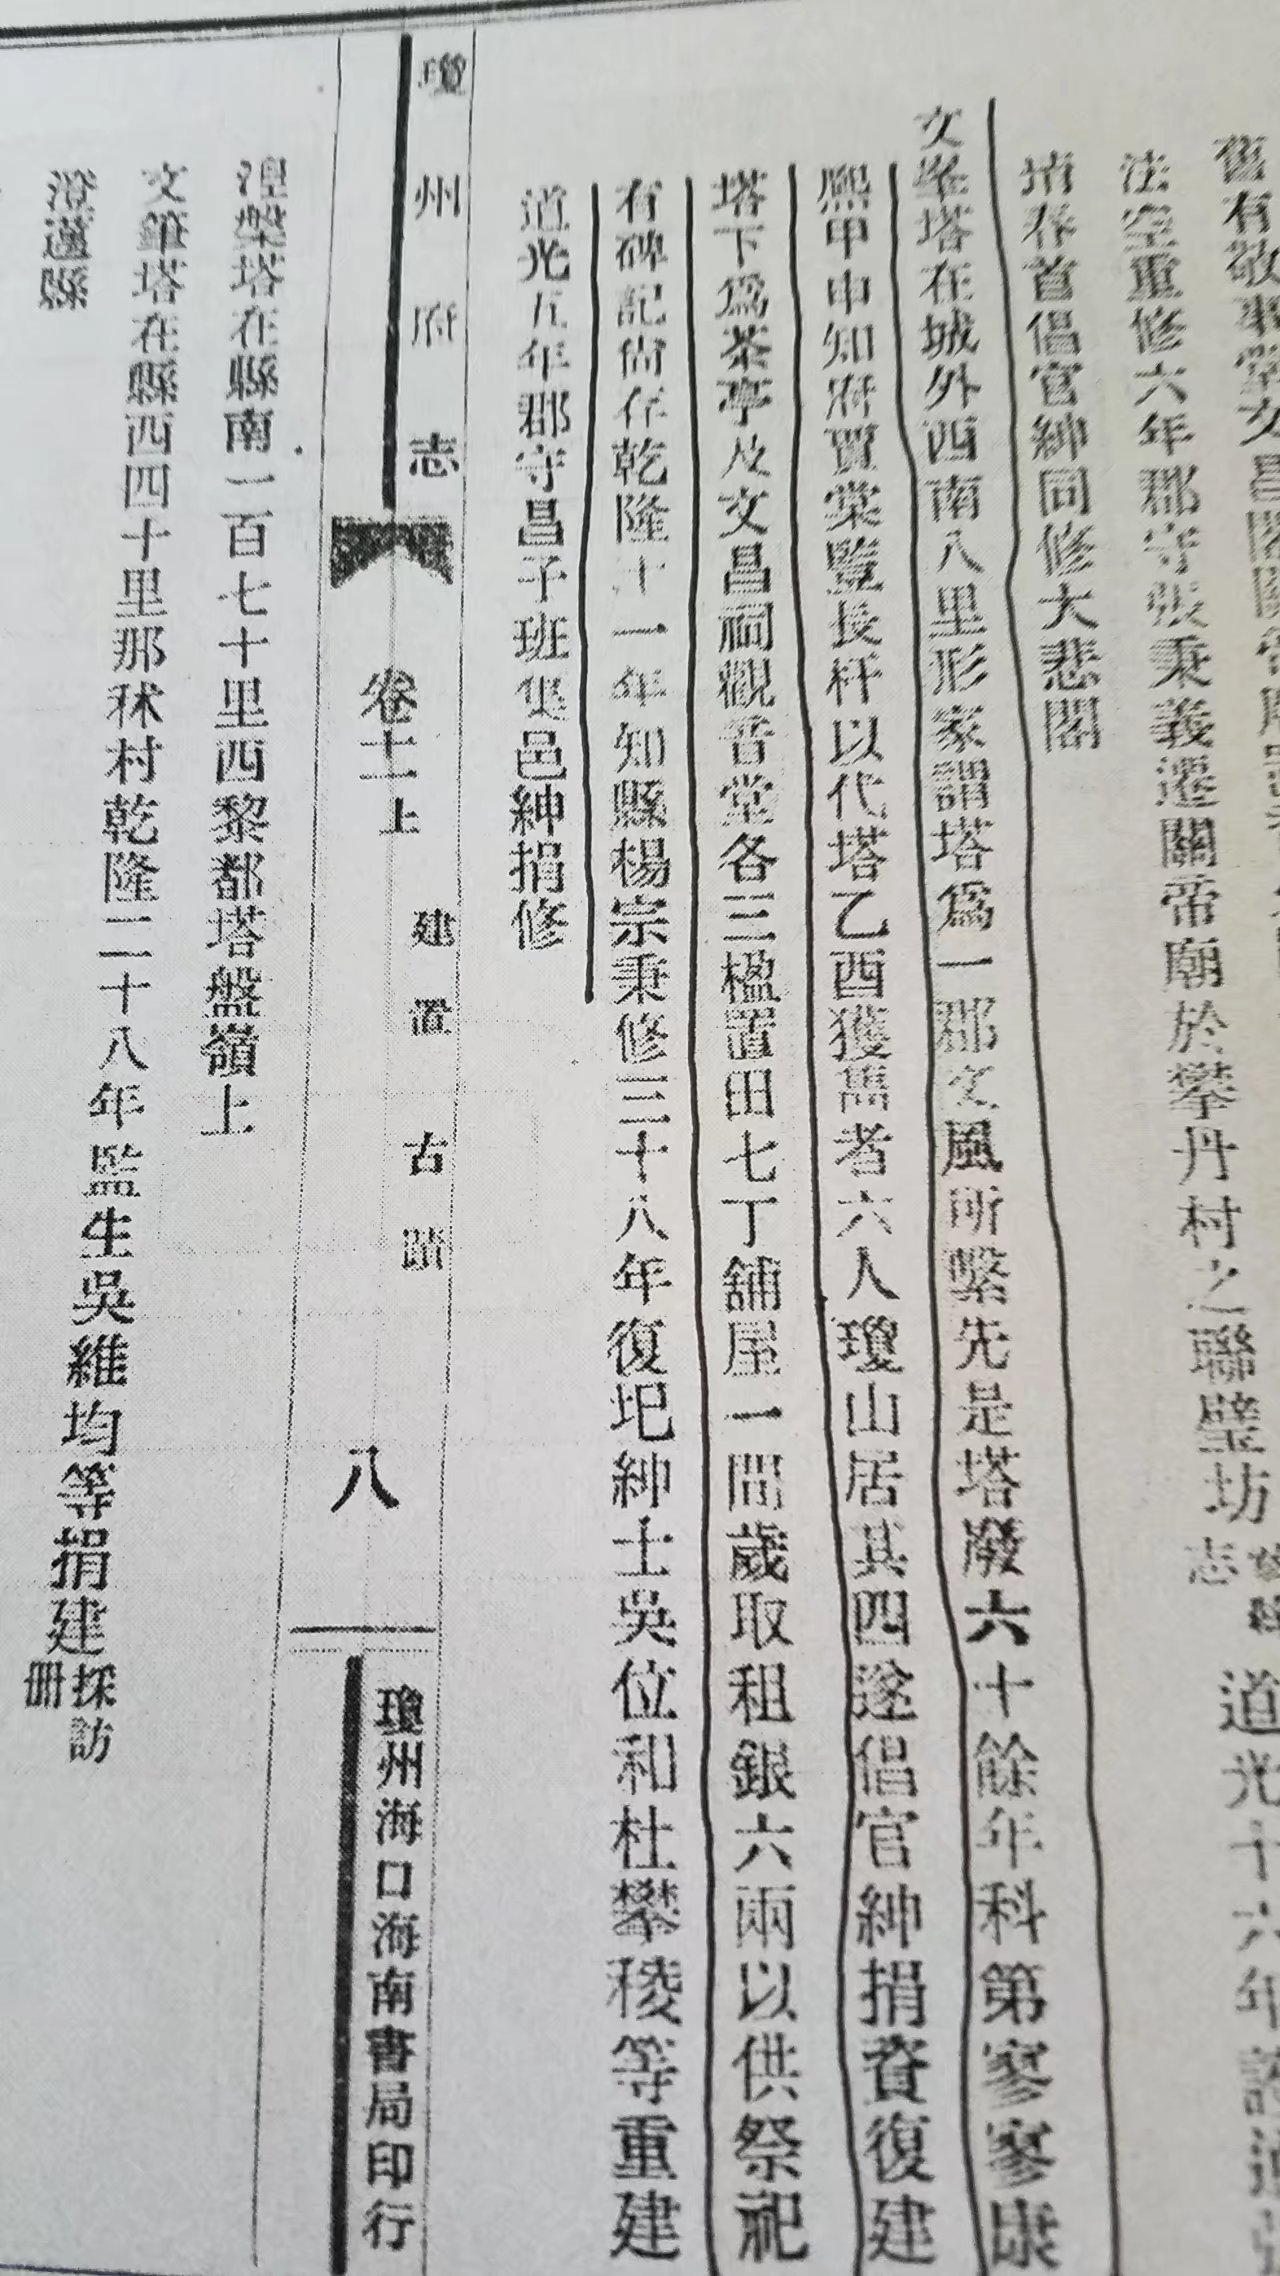 舊有敬事堂文昌閣關帝
道光十六年
志
法空重修六年郡守張秉義遷關帝廟於攀丹村之聯璧坊
堉春首倡官紳同修大悲閣
文峯塔在城外西南八里形家謂塔爲一郡文風所繫先是塔廢六十餘年科第寥寥康
熙甲申知府賈棠豎長杆以代塔乙酉獲雋者六人瓊山居其四遂倡官紳捐資復建
塔下爲茶亭及文昌祠觀音堂各三楹置田七丁舖屋一間歲取租銀六兩以供祭祀
有碑記尙存乾隆十一年知縣楊宗秉修三十八年復圯紳士吳位和杜攀稜等重建
道光五年郡守昌子班集邑紳捐修
瓊州府志
卷十一上 建置 古蹟
八
瓊州海口海南書局印行
湼槃塔在縣南一百七十里西黎都塔盤嶺上
文筆塔在縣西四十里那秫村乾隆二十八年監生吳維均等捐建採訪冊
澄邁縣